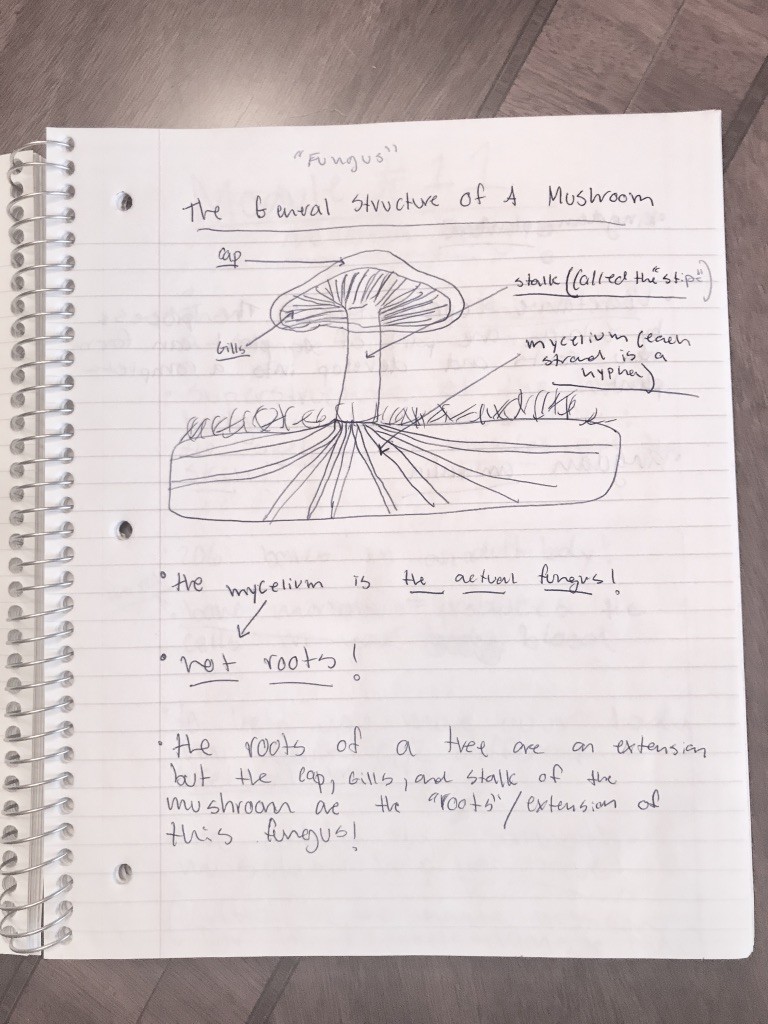 "Fungus"
The General Structure of A Mushroom
cap
stalk (called the "stipe")
Gills
mycelium (each
strand is a
hypha)
• the mycelium is the actual fungus!
• not roots!
• the roots of a tree are an extension
but the cap, Gills, and stalk of the
mushroom are the "roots"/extension of
this fungus!